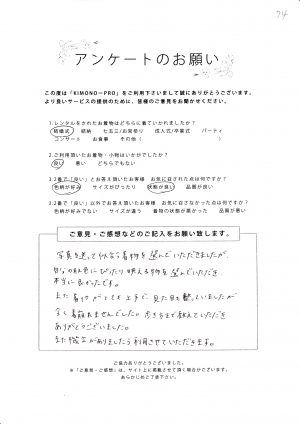 74
アンケートのお願い
この度は「KIMONO-PRO」をご利用下さいまして誠にありがとうございます。
より良いサービスの提供のために、皆様のご意見をお聞かせください。
1.レンタルをされたお着物はどちらに着ていかれましたか?
結婚式 結納 七五三/お宮参り 成人式/卒業式 パーティ
コンサート お食事 その他( )
2.ご利用頂いたお着物・小物はいかがでしたか?
良い 悪い どちらでもない
3.2番で「良い」とお答え頂いたお客様 お気に召された点は何ですか?
色柄が好み サイズがぴったり 状態が良い 品質が良い
3.2番で「良い」以外でお答え頂いたお客様 お気に召さなかった点は何ですか?
色柄が好みでない サイズが違う 着物の状態が悪かった 品質が悪い
ご意見・ご感想などのご記入をお願い致します。
写真を送って似合う着物を選んでいただきましたが、
自分の肌色にぴったり映える物を選んでいただき
本当に良かったです。
また着付がとても上手で、見た目も
全く着崩れませんでした。歩き方まで教えていただき
ありがとうございました。
また機会がありましたら利用させていただきます。
ご協力ありがとうございました。
※「ご意見・ご感想」は、サイト上に掲載させて頂く場合がございます。
あらかじめご了承下さい。